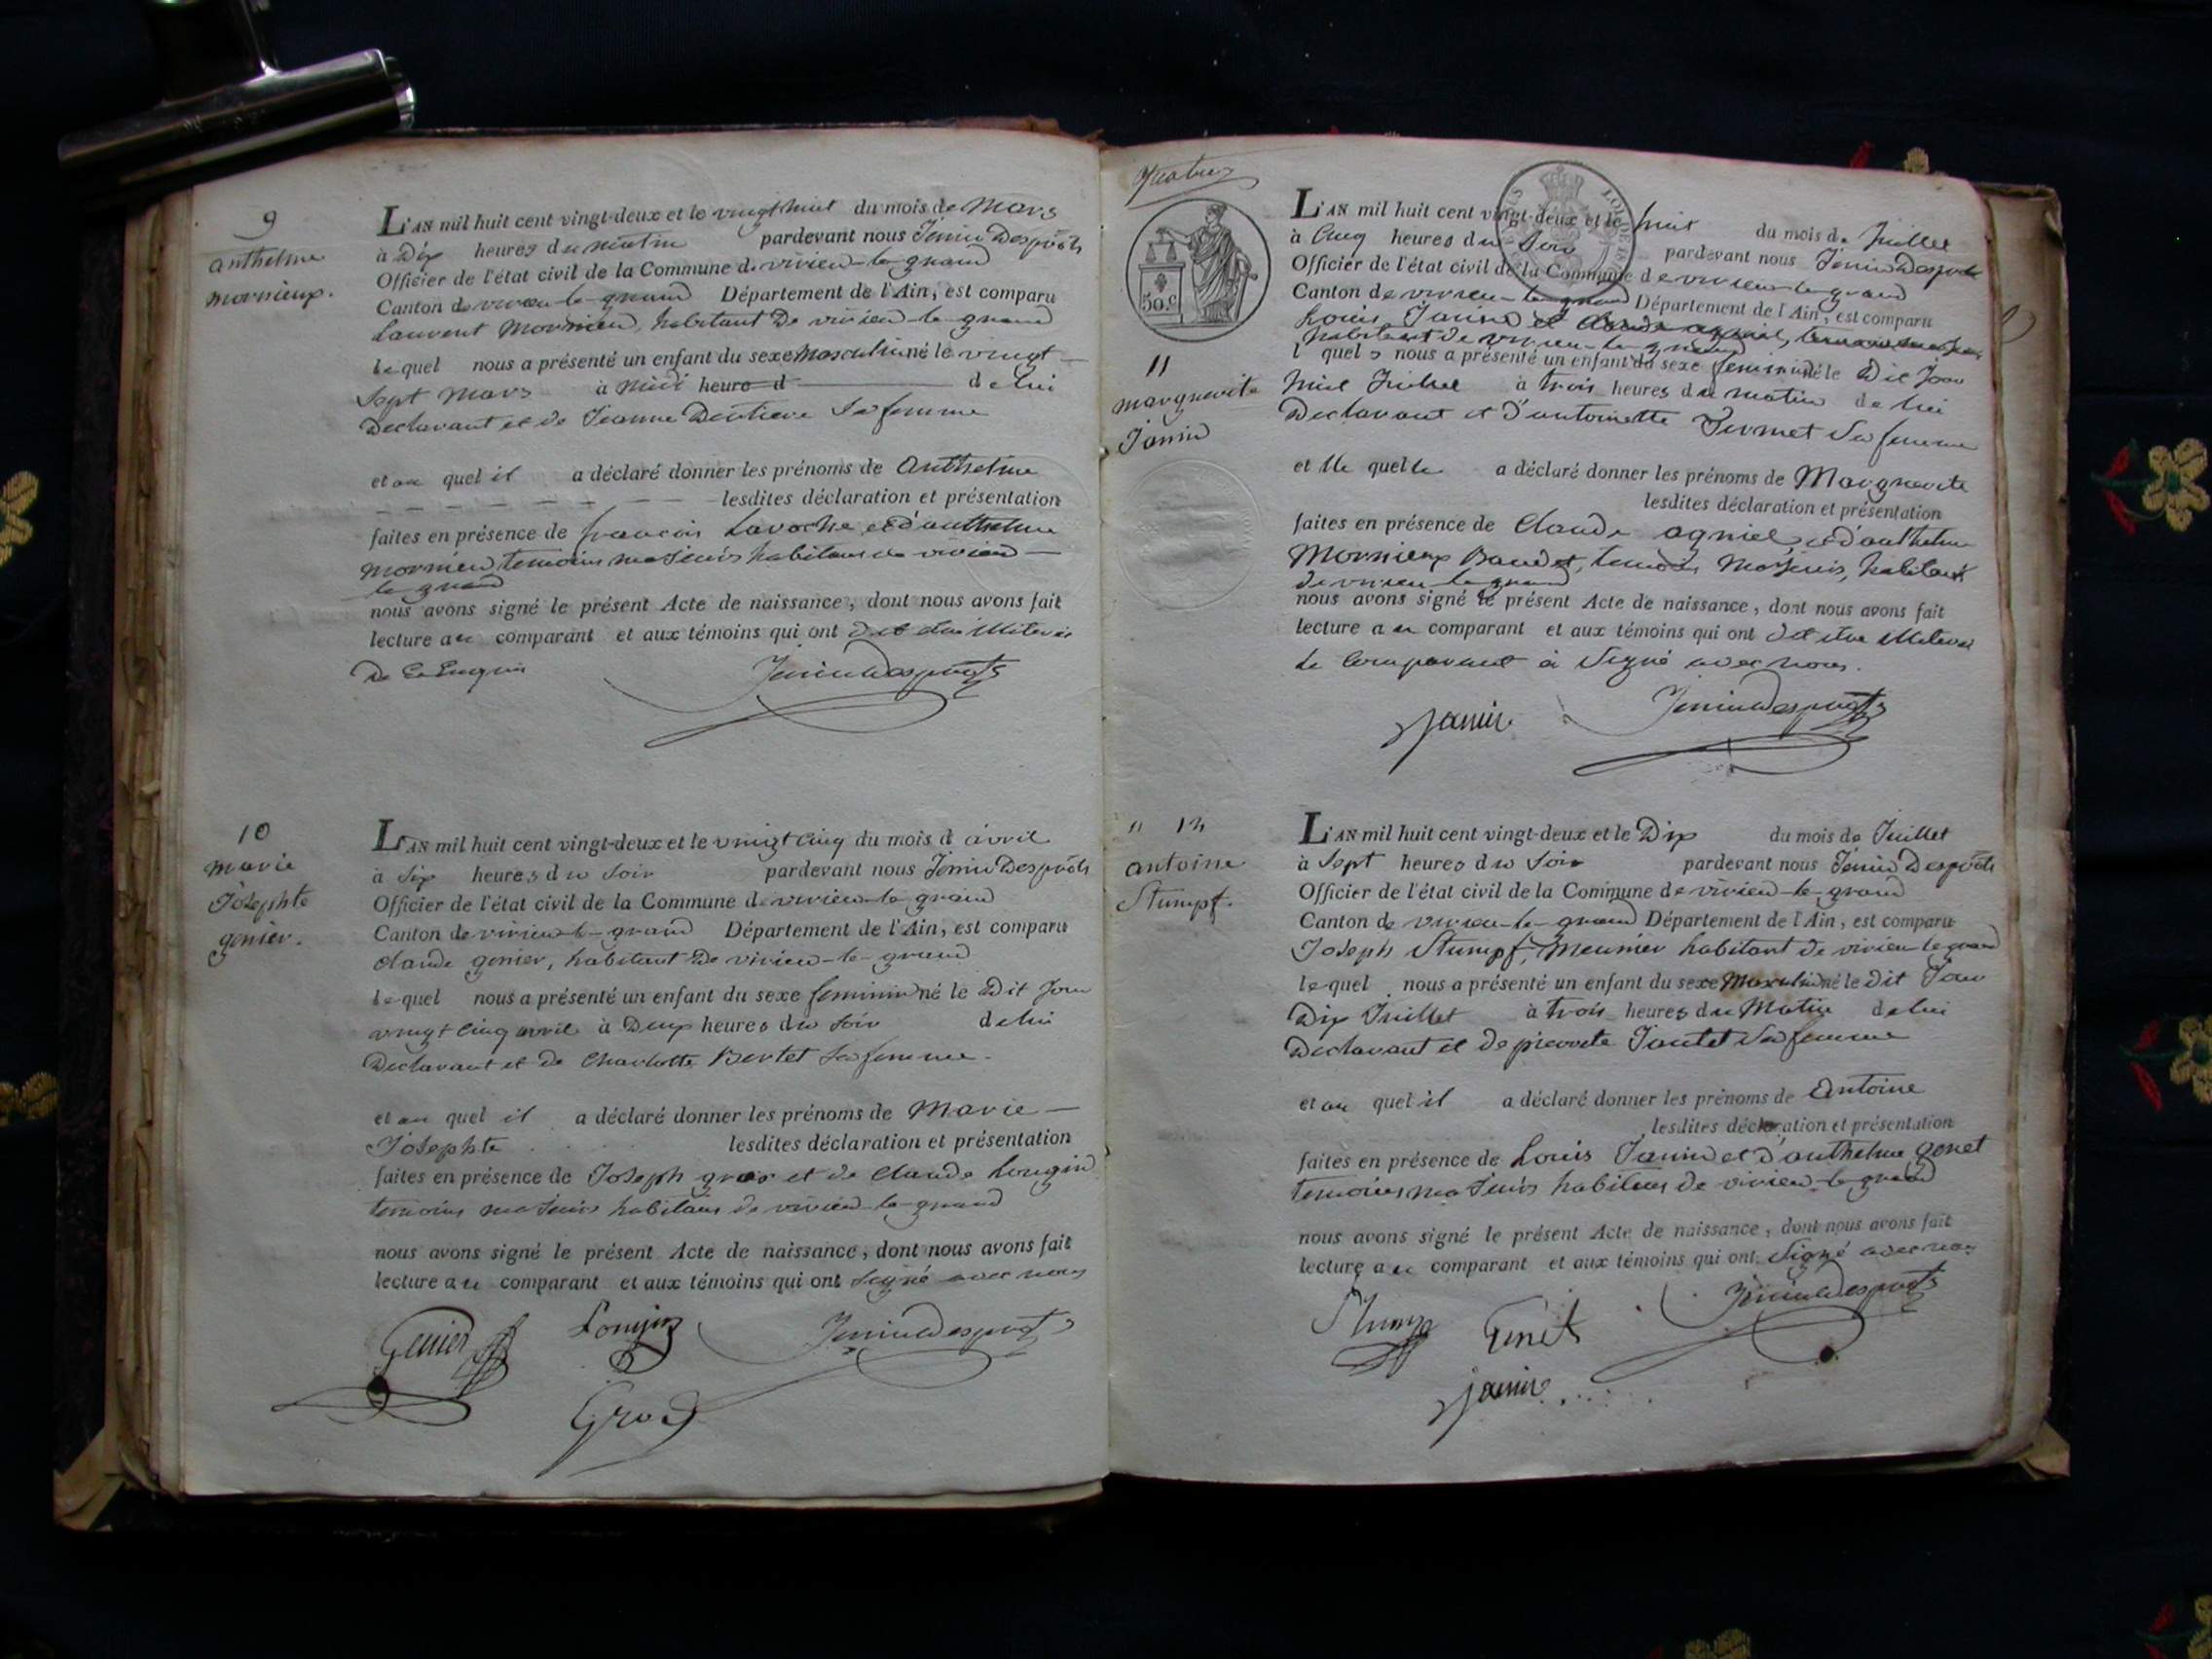 9
anthelme
mornieux.
L'AN mil huit cent vingt-deux et le vingt huit du mois de Mars
à Dix heures du matin pardevant nous Jenin Desprôts
Officier de l'état civil de la Commune de virieu-le-grand
Canton de virieu-le-grand Département de l'Ain, est comparu
Laurent Mornieu, habitant De virieu-le-grand
lequel nous a présenté un enfant du sexe masculin né le vingt
Sept Mars à midi heure d de lui
Declarant et de Jeanne sa femme
et au quel il a déclaré donner les prénoms de Anthelme
lesdites déclaration et présentation
faites en présence de françois Laroche, et d'anthelme
mornieu, temoins majeurs habitans de virieu
le grand
nous avons signé le présent Acte de naissance, dont nous avons fait
lecture au comparant et aux témoins qui ont dit etre illiterés
De ce Enquis
Jenin Desprôts
10
marie
Josephte
genier.
L'AN mil huit cent vingt-deux et le vingt cinq du mois d avril
à Six heures du Soir pardevant nous Jenin Desprôts
Officier de l'état civil de la Commune de virieu-le-grand
Canton de virieu-le-grand Département de l'Ain, est comparu
claude genier, habitant De virieu-le-grand
lequel nous a présenté un enfant du sexe feminin né le Dit Jour
vingt cinq avril à Deux heures du Soir de lui
Declarant et de Charlotte Bertet sa femme.
et au quel il a déclaré donner les prénoms de Marie
Josephte lesdites déclaration et présentation
faites en présence de Joseph gros et de Claude Lougin
temoins majeurs habitans de virieu-le-grand
nous avons signé le présent Acte de naissance, dont nous avons fait
lecture au comparant et aux témoins qui ont signé avec nous
Genier Lougin Jenin Desprôts
Gros
Quatre
50.c
11
marguerite
Janin
L'AN mil huit cent vingt-deux et le huit du mois de Juillet
à Cinq heures du Soir pardevant nous Jenin Desprôts
Officier de l'état civil de la Commune de virieu-le-grand
Canton de virieu-le-grand Département de l'Ain, est comparu
Louis Janin et Claude agniel,
habitant de virieu-le-grand
l quel s nous a présenté un enfant du sexe feminin né le Dit Jour
huit Juillet à trois heures du matin de lui
Declarant et d'antoinette Jermet Sa femme
et lle quelle a déclaré donner les prénoms de Marguerite
lesdites déclaration et présentation
faites en présence de Claude agniel, et d'anthelme
Mornieux Baudet, temoins Majeurs, habitans
de virieu-le-grand
nous avons signé le présent Acte de naissance, dont nous avons fait
lecture au comparant et aux témoins qui ont dit etre illiteres
le Comparant à Signé avec nous.
Janin Jenin Desprôts
12
antoine
Stumpf.
L'AN mil huit cent vingt-deux et le Dix du mois de Juillet
à Sept heures du Soir pardevant nous Jenin Desprôts
Officier de l'état civil de la Commune de virieu-le-grand
Canton de virieu-le-grand Département de l'Ain, est comparu
Joseph Stumpf, Meunier habitant de virieu-le-grand
lequel nous a présenté un enfant du sexe Masculin né le Dit Jour
Dix Juillet à trois heures du Matin de lui
Declarant et de pierrete Jantet Sa femme
et au quel il a déclaré donner les prénoms de Antoine
lesdites déclaration et présentation
faites en présence de Louis Janin et d'anthelme genet
temoins majeurs habitans de virieu-le-grand
nous avons signé le présent Acte de naissance, dont nous avons fait
lecture au comparant et aux témoins qui ont Signé avec nous
Stumpf Genet Jenin Desprôts
Janin